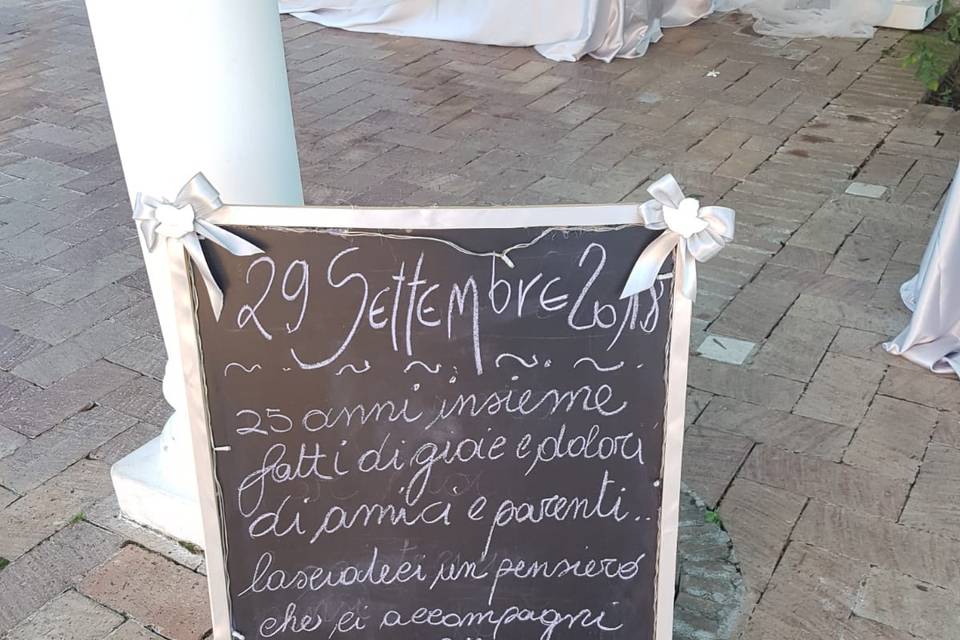 29 Settembre 2018
25 anni insieme
fatti di gioie e dolori
di amici e parenti..
lasciateci un pensiero
che ci accompagni